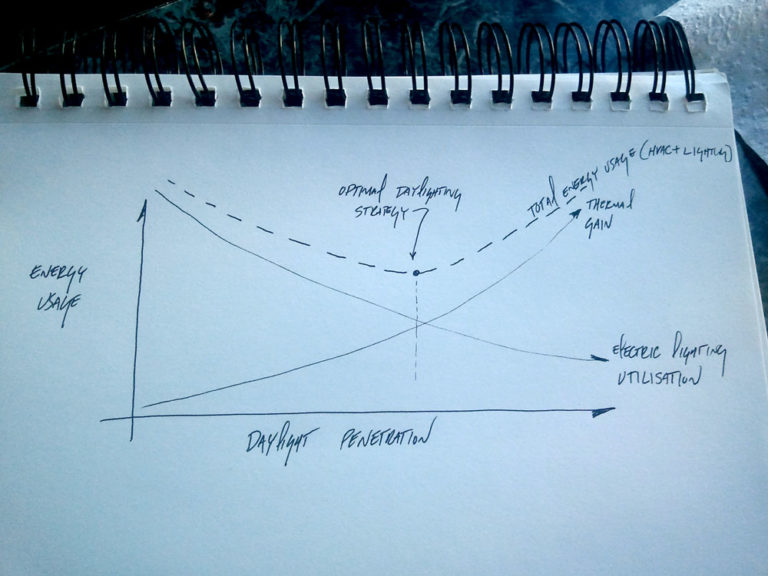 OPTIMAL DAYLIGHTING
STRATEGY
TOTAL ENERGY USAGE (HVAC + LIGHTING)
THERMAL
GAIN
ENERGY
USAGE
ELECTRIC LIGHTING
UTILISATION
DAYLIGHT PENETRATION